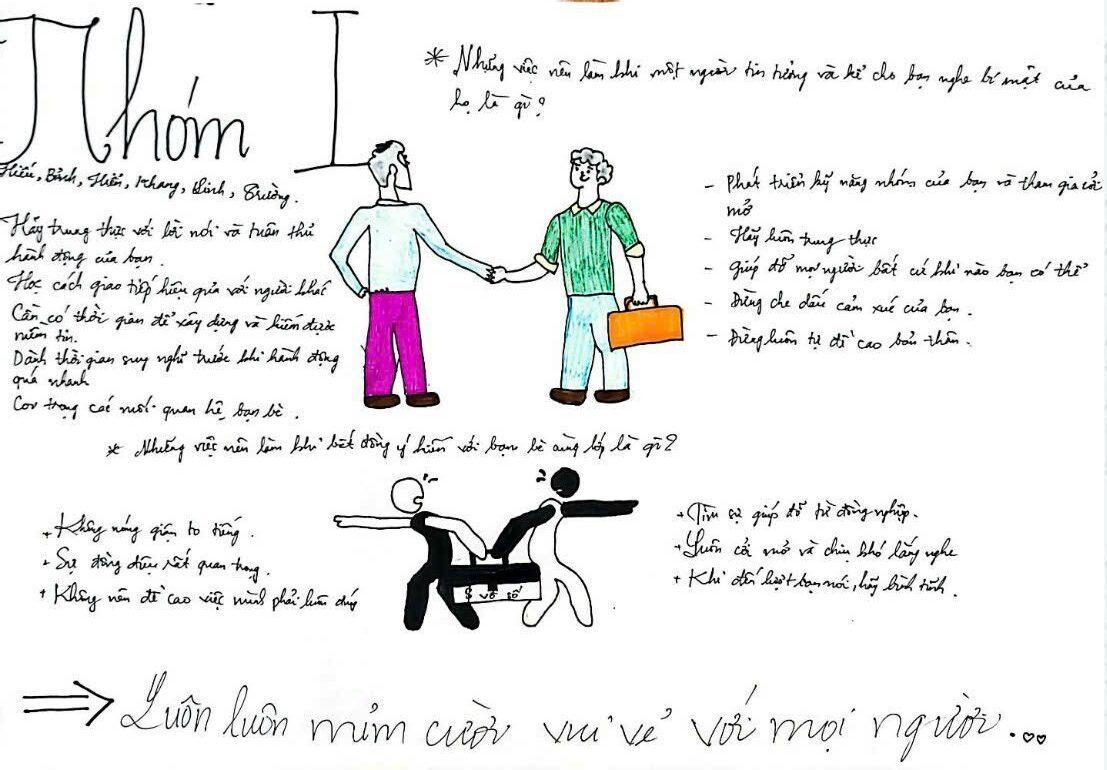 Nhóm I
Hiếu, Bảnh, Hiến, Khang, Linh, Trường.
* Những việc nên làm khi một người tin tưởng và kể cho bạn nghe bí mật của
họ là gì?
Hãy trung thực với lời nói và tuân thủ
hành động của bạn.
Học cách giao tiếp hiệu quả với người khác
Cần có thời gian để xây dựng và kiếm được
niềm tin.
Dành thời gian suy nghĩ trước khi hành động
quá nhanh
Coi trọng các mối quan hệ bạn bè.
- Phát triển kỹ năng nhóm của bạn và tham gia cởi
mở
- Hãy luôn trung thực
- Giúp đỡ mọi người bất cứ khi nào bạn có thể
- Đừng che dấu cảm xúc của bạn.
- Đừng luôn tự đề cao bản thân.
* Những việc nên làm khi bất đồng ý kiến với bạn bè cùng lớp là gì?
+ Không nóng giận to tiếng.
+ Sự đồng điệu rất quan trọng.
+ Không nên đề cao việc mình phải luôn đúng
vô số
+ Tìm sự giúp đỡ từ đồng nghiệp.
+ Luôn cởi mở và chịu khó lắng nghe
+ Khi đến lượt bạn nói, hãy bình tĩnh.
⇒ Luôn luôn mỉm cười vui vẻ với mọi người...